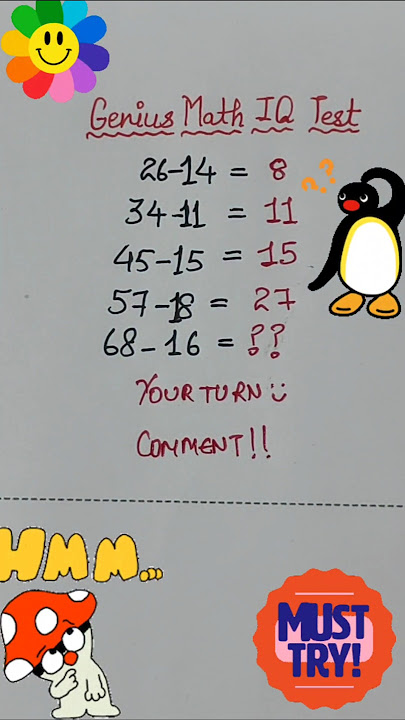 Genius Math IQ Test
26-14 = 8
??
34-11 = 11
45-15 = 15
57-18 = 27
68-16 = ??
YOUR TURN
COMMENT!!
HMM...
MUST
TRY!